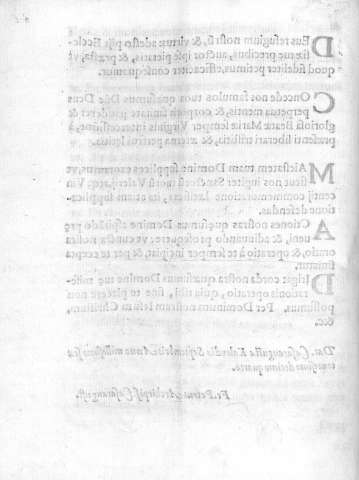 DEus refugium nostrũ, & virtus: adesto pijs Ecclesiæ
tuæ precibus, auctor ipse pietatis, & præsta, vt
quod fideliter petimus, efficaciter consequamur.
COncede nos famulos tuos quæsumus Dñe Deus
perpetua mentis, & corporis sanitate gaudere: &
gloriosa Beatæ Mariæ semper Virginis intercessione, à
præsenti liberari tristitia, & æterna perfrui lætitia.
MAiestatem tuam Domine supplices exoramus, vt
sicut nos iugiter Sanctorũ tuorũ Valerij, atq; Vincentij
commemoratione lætificas, ita etiam supplicatione
defendas.
ACtiones nostras quæsumus Domine aspirãdo præueni,
& adiuuando prosequere: vt cuncta nostra
oratio, & operatio à te semper incipiat, & per te cœpta
finiatur.
DIrigat corda nostra quæsumus Domine tuæ miserationis
operatio, quia tibi, sine te placere non
possumus. Per Dominum nostrum Iesum Christum,
&c.
Dat. Cæsaraugustæ Kalendis Septembris Anno millesimo sex
centesimo decimo quarto.
Fr. Petrus Archiepis. Cæsaraugust.